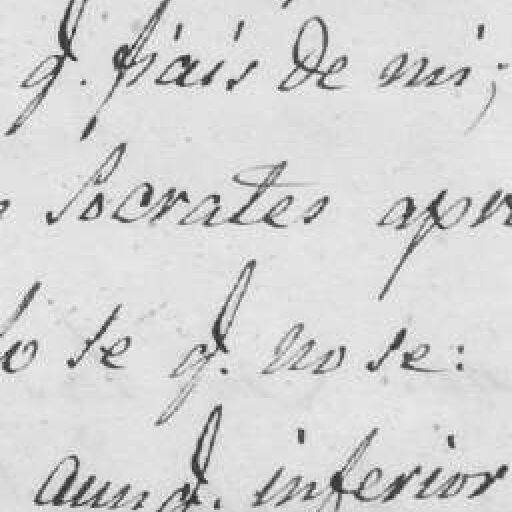 q. fiais de mi;
Socrates apr
lo se q. no se:
aunq. inferior